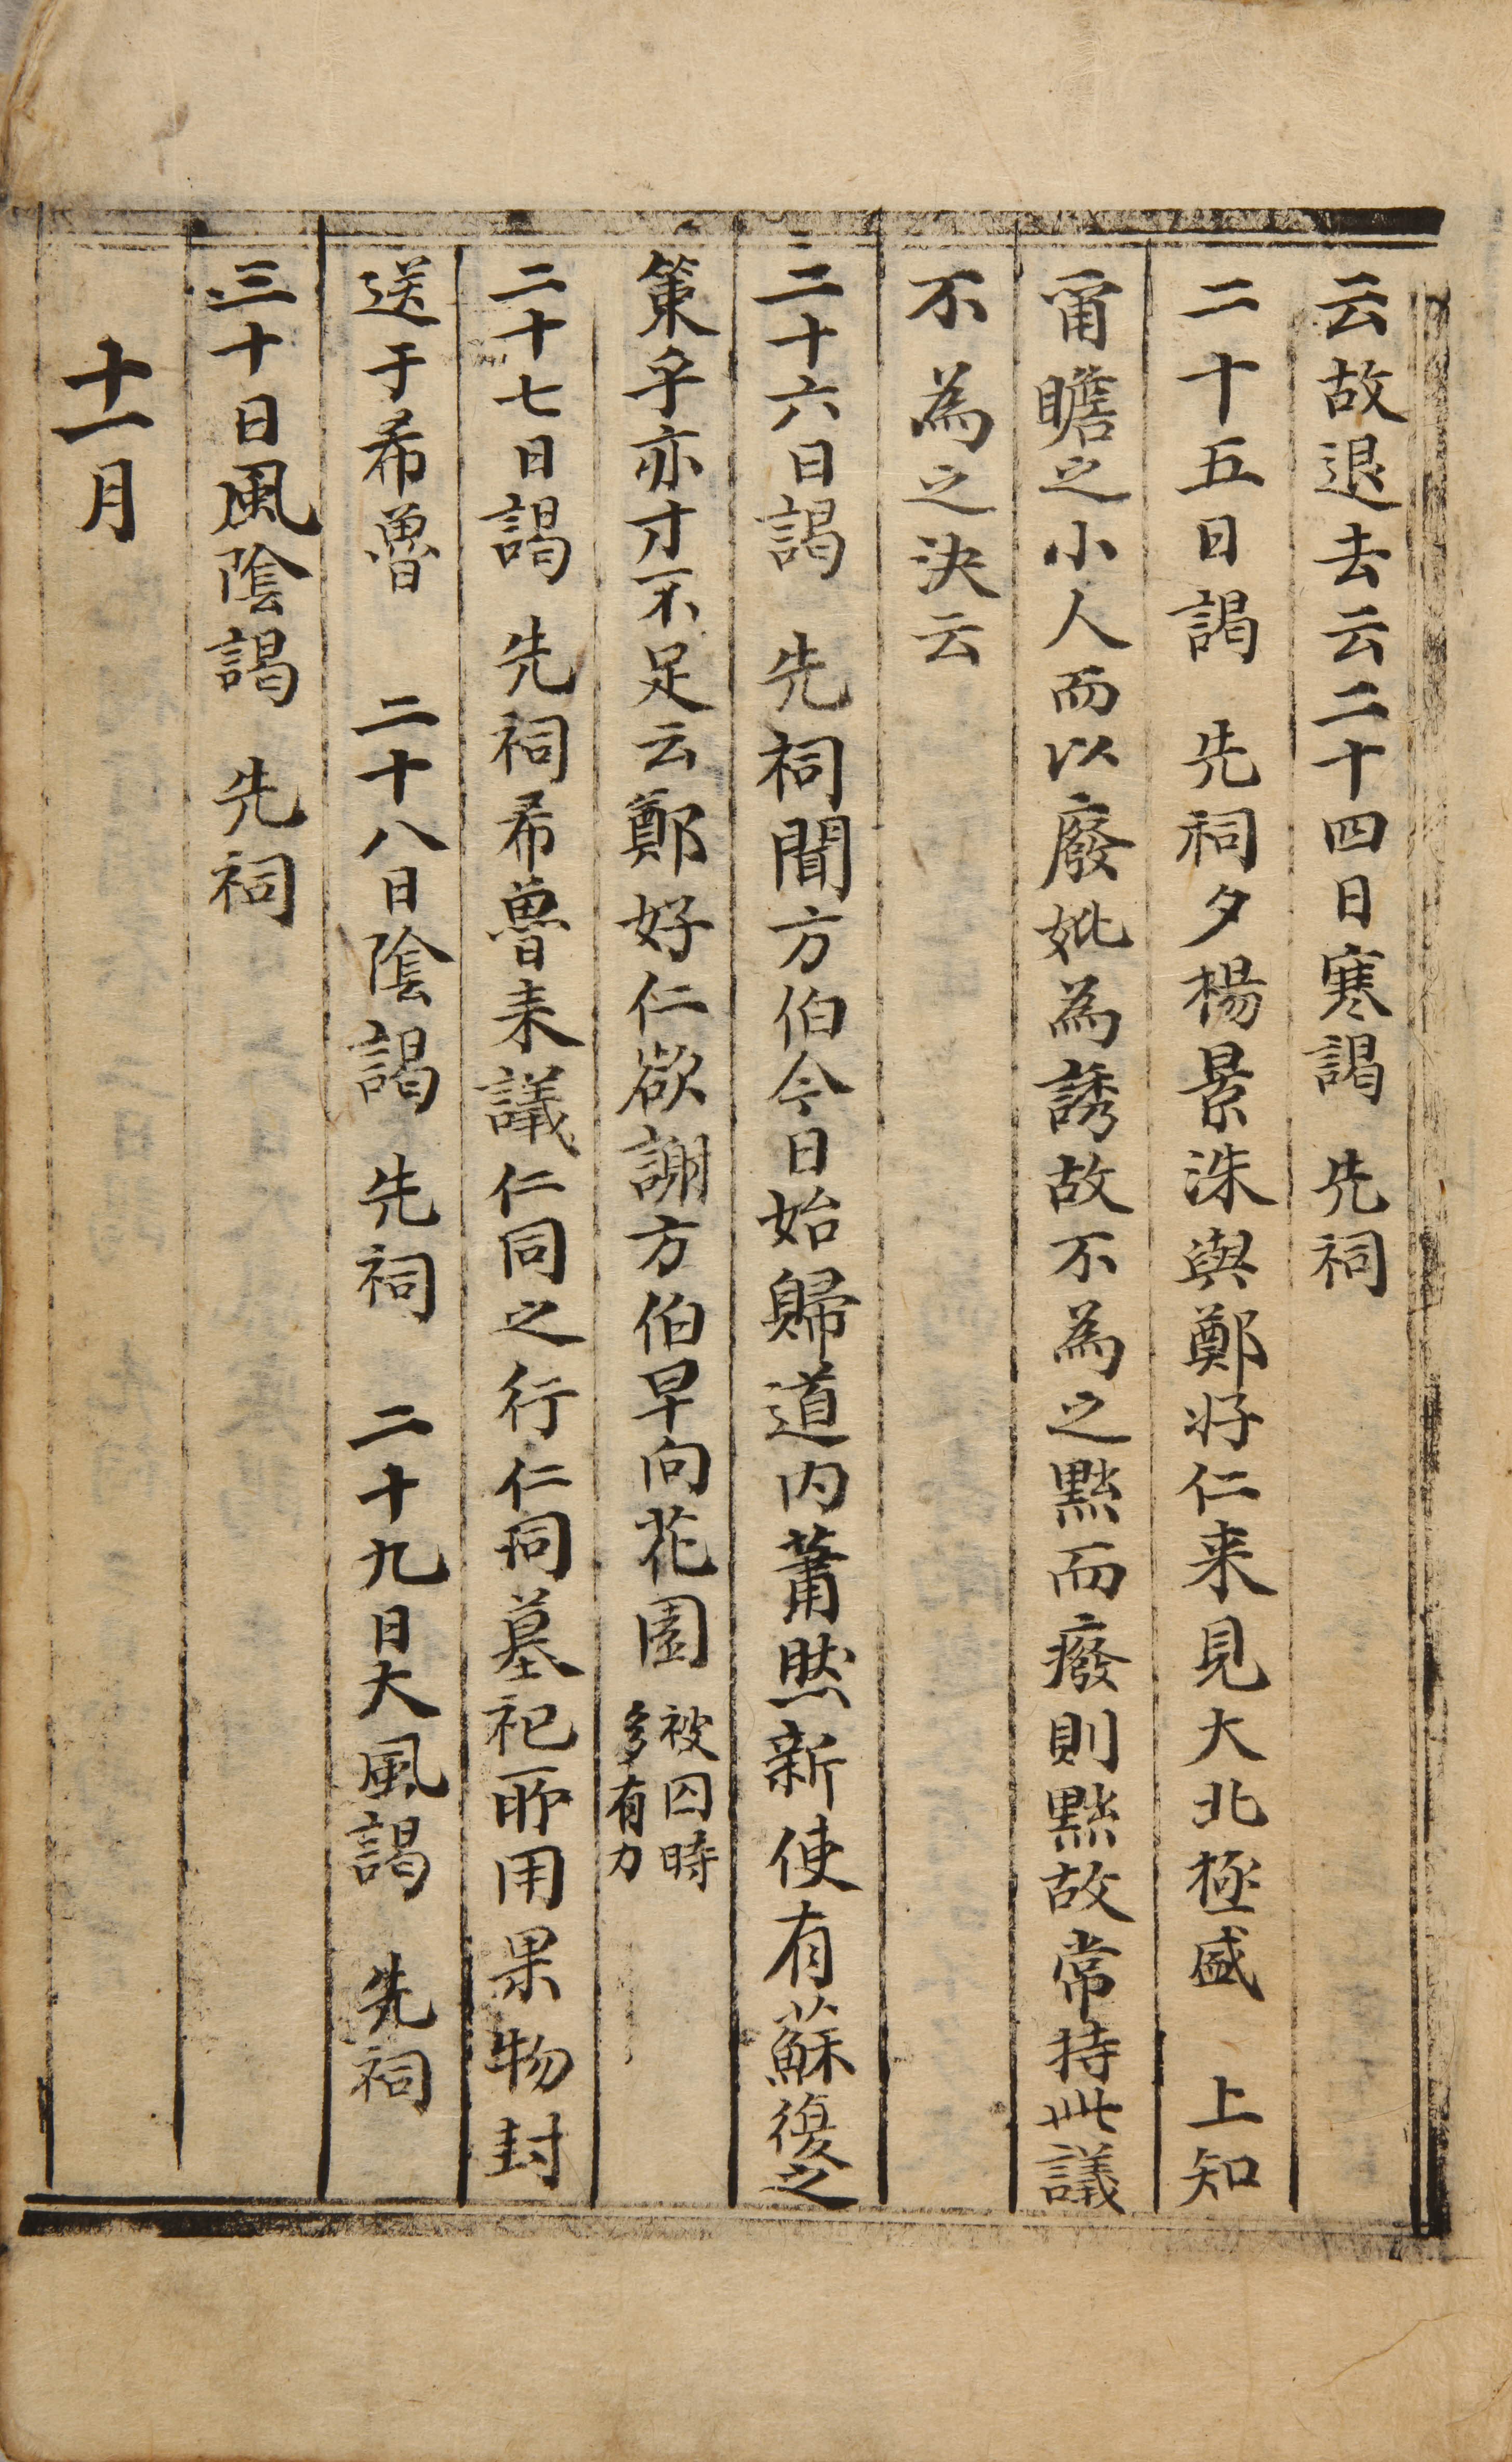 云故退去云二十四日寒謁 先祠
二十五日謁 先祠夕楊景洙與鄭好仁来見大北極盛 上知
甭瞻之小人而以廢妣為誘故不為之黙而癈則黙故常持此議
不為之決云
二十六日謁 先祠聞方伯今日始歸道内蕭然新使有蘇復之
策乎亦才不足云鄭好仁欲謝方伯早向花園被囚時多有力
二十七日謁 先祠希魯来議仁同之行仁同墓祀所用果物封
送于希魯 二十八日陰謁 先祠 二十九日大風謁 先祠
三十日風陰謁 先祠
十一月